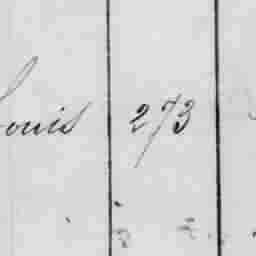 Louis 273